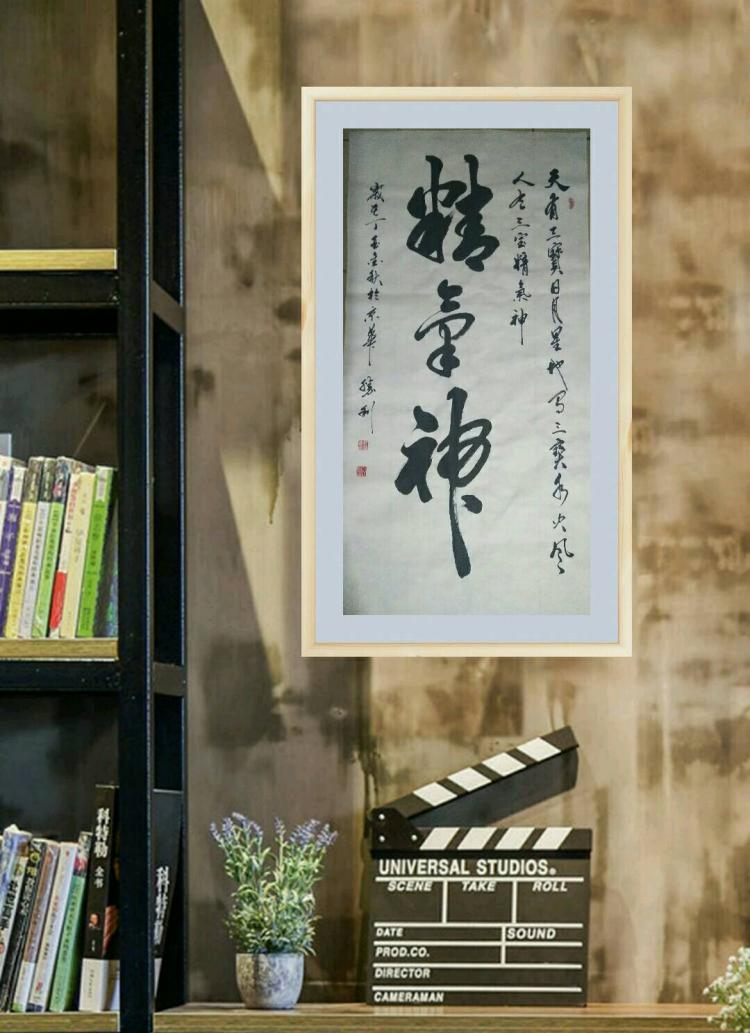 天有三寶日月星地有三寶水火风
人有三宝精氣神
精氣神
歲在丁酉金秋於京華 勝利
科特勒
全书
科特勒
UNIVERSAL STUDIOS®
SCENE TAKE ROLL
DATE SOUND
PROD.CO.
DIRECTOR
CAMERAMAN